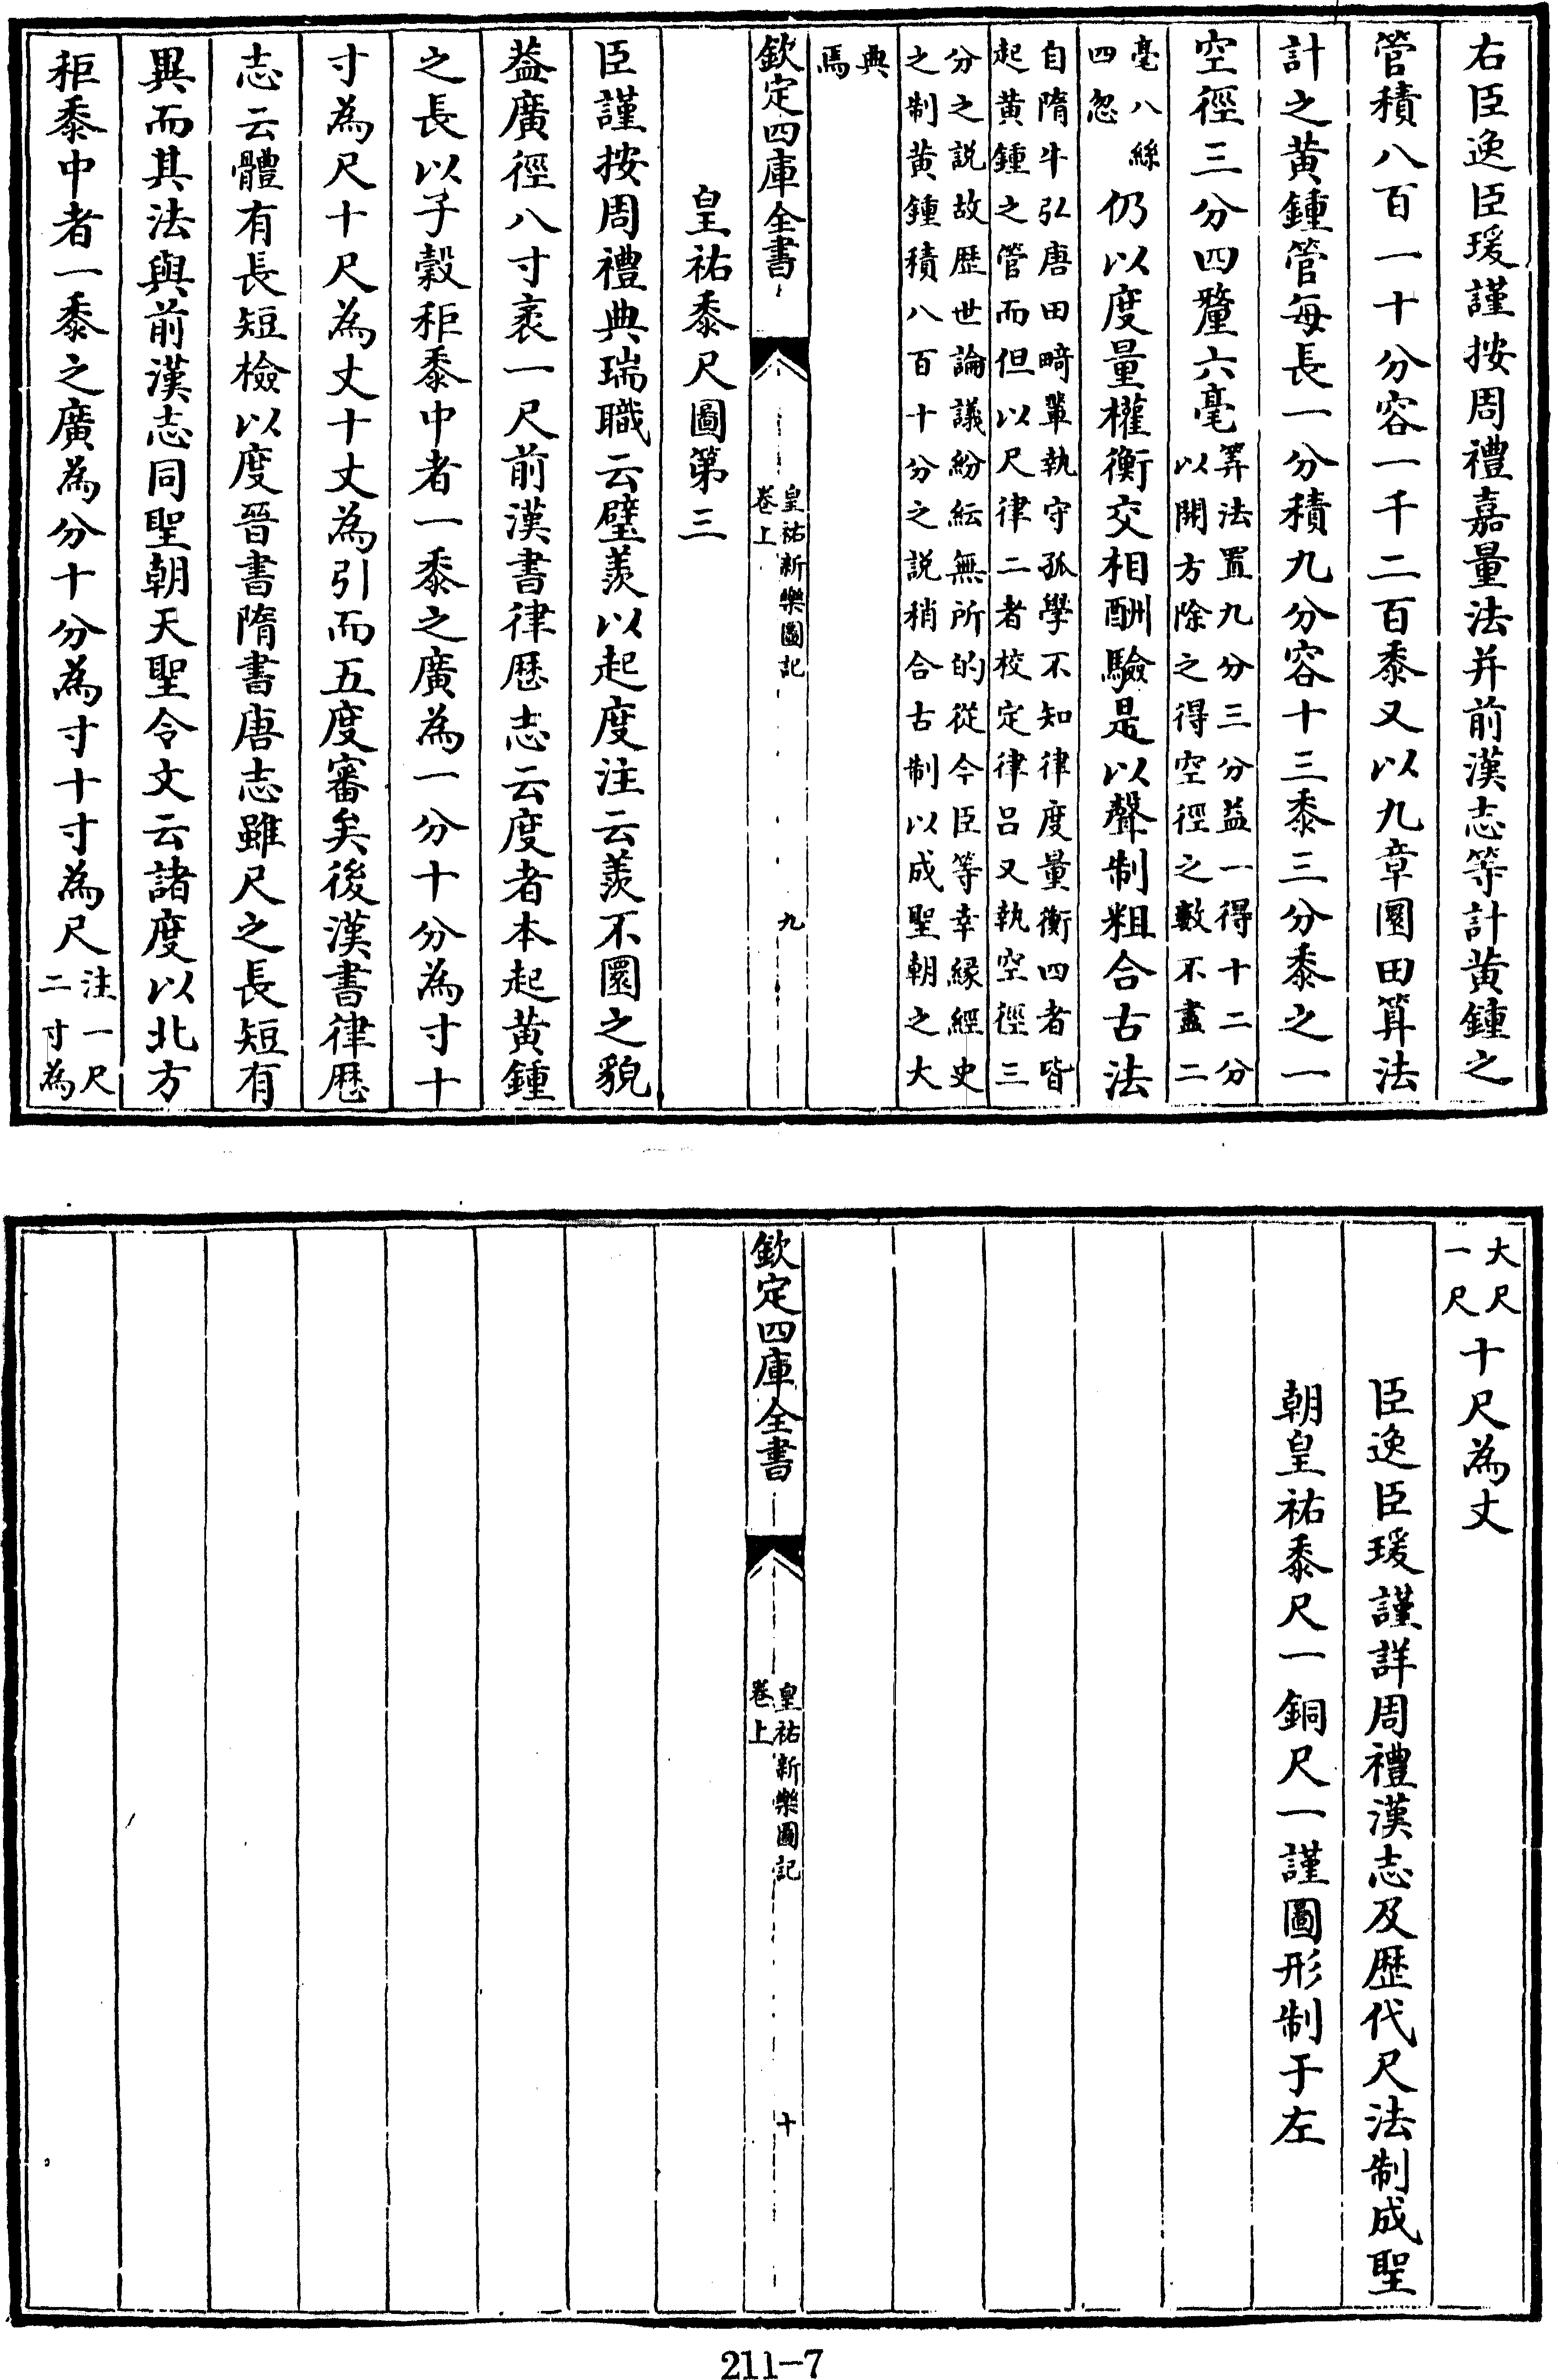 右臣逸臣瑗謹按周禮嘉量法并前漢志等計黄鍾之
管積八百一十分容一千二百黍又以九章圜田算法
計之黄鍾管每長一分積九分容十三黍三分黍之一
空徑三分四釐六毫筭法置九分三分益一得十二分
以開方除之得空徑之數不盡二
毫八絲
四忽仍以度量權衡交相酬驗是以聲制粗合古法
自隋牛弘唐田畸輩執守孤學不知律度量衡四者皆
起黄鍾之管而但以尺律二者校定律吕又執空徑三
分之説故歴世論議紛紜無所的從今臣等幸縁經史
之制黄鍾積八百十分之説稍合古制以成聖朝之大
典
焉
欽定四庫全書
皇祐新樂圖記
卷上
九
皇祐黍尺圖第三
臣謹按周禮典瑞職云璧羨以起度注云羨不圜之貌
葢廣徑八寸袤一尺前漢書律厯志云度者本起黄鍾
之長以子穀秬黍中者一黍之廣為一分十分為寸十
寸為尺十尺為丈十丈為引而五度審矣後漢書律厯
志云體有長短檢以度晉書隋書唐志雖尺之長短有
異而其法與前漢志同聖朝天聖令文云諸度以北方
秬黍中者一黍之廣為分十分為寸十寸為尺注一尺
二寸為
大尺
一尺十尺為丈
臣逸臣瑗謹詳周禮漢志及歴代尺法制成聖
朝皇祐黍尺一銅尺一謹圖形制于左
欽定四庫全書
皇祐新樂圖記
卷上
十
211-7